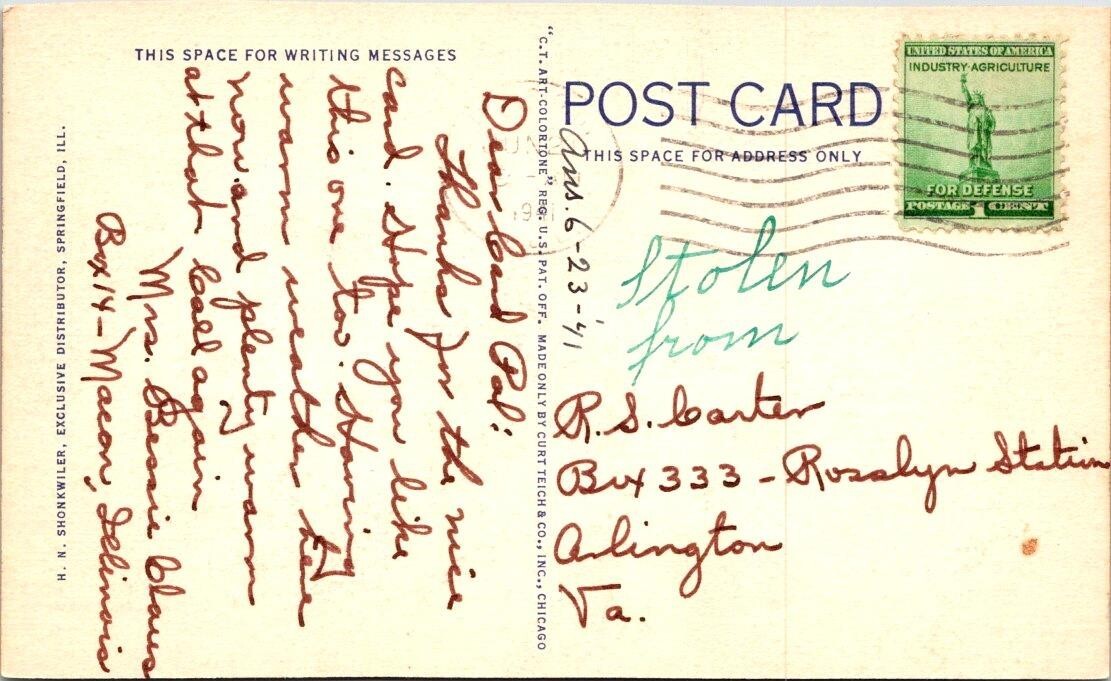 THIS SPACE FOR WRITING MESSAGES
Dear Card Pal:
Thanks for the nice
card. Hope you like
this one too. Having
warm weather here
now and plenty warm
at that. Call again
Mrs. Bessie Claus
Box 14 - Macon, Illinois
H. N. SHONKWILER, EXCLUSIVE DISTRIBUTOR, SPRINGFIELD, ILL.
"C.T. ART-COLORTONE" REG. U.S. PAT. OFF. MADE ONLY BY CURT TEICH & CO., INC., CHICAGO
POST CARD
THIS SPACE FOR ADDRESS ONLY
Ans. 6-23-'41
UNITED STATES OF AMERICA
INDUSTRY·AGRICULTURE
FOR DEFENSE
POSTAGE 1 CENT
Stolen
from
R.S. Carter
Box 333 - Rosslyn Station
Arlington
Va.